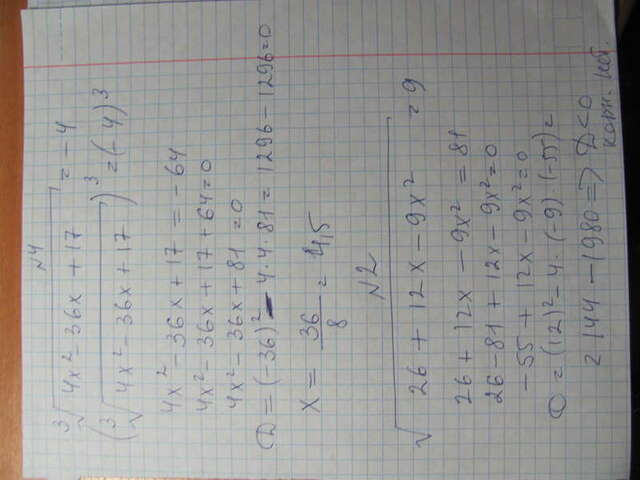 №4
∛(4x² - 36x + 17) = -4
(∛(4x² - 36x + 17))³ = (-4)³
4x² - 36x + 17 = -64
4x² - 36x + 17 + 64 = 0
4x² - 36x + 81 = 0
D = (-36)² - 4·4·81 = 1296 - 1296 = 0
x = 36/8 = 4,5
№2
√(26 + 12x - 9x²) = 9
26 + 12x - 9x² = 81
26 - 81 + 12x - 9x² = 0
-55 + 12x - 9x² = 0
D = (12)² - 4·(-9)·(-55) =
= 144 - 1980 => D<0
корн. нет.